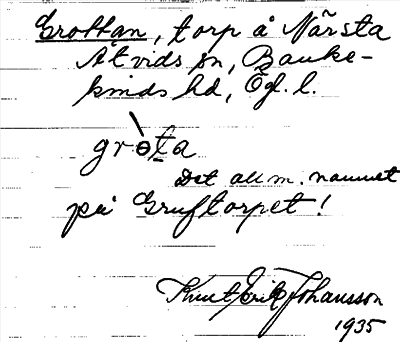 Grottan, torp å Närsta
Åtvids sn, Banke-
kinds hd, Ögl. l.
gròta
Det all m. namnet
på Gruftorpet!
Knut Erik Johansson
1935